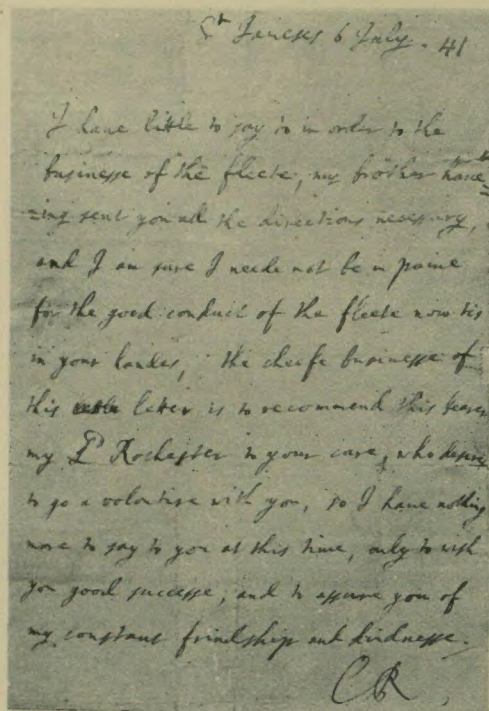 St Jameses 6 July. 41
I have little to say to in order to the
businesse of the fleete, my brother have=
=ing sent you all the directions necessary,
and I am sure I neede not be in paine
for the good conduct of the fleete now tis
in your handes, the cheefe businesse of
this letter is to recommend this bearer
my Ld Rochester to your care, who desires
to go a volontire with you, so I have nothing
more to say to you at this time, only to wish
you good successe, and to assure you of
my constant frindship and kindnesse.
CR